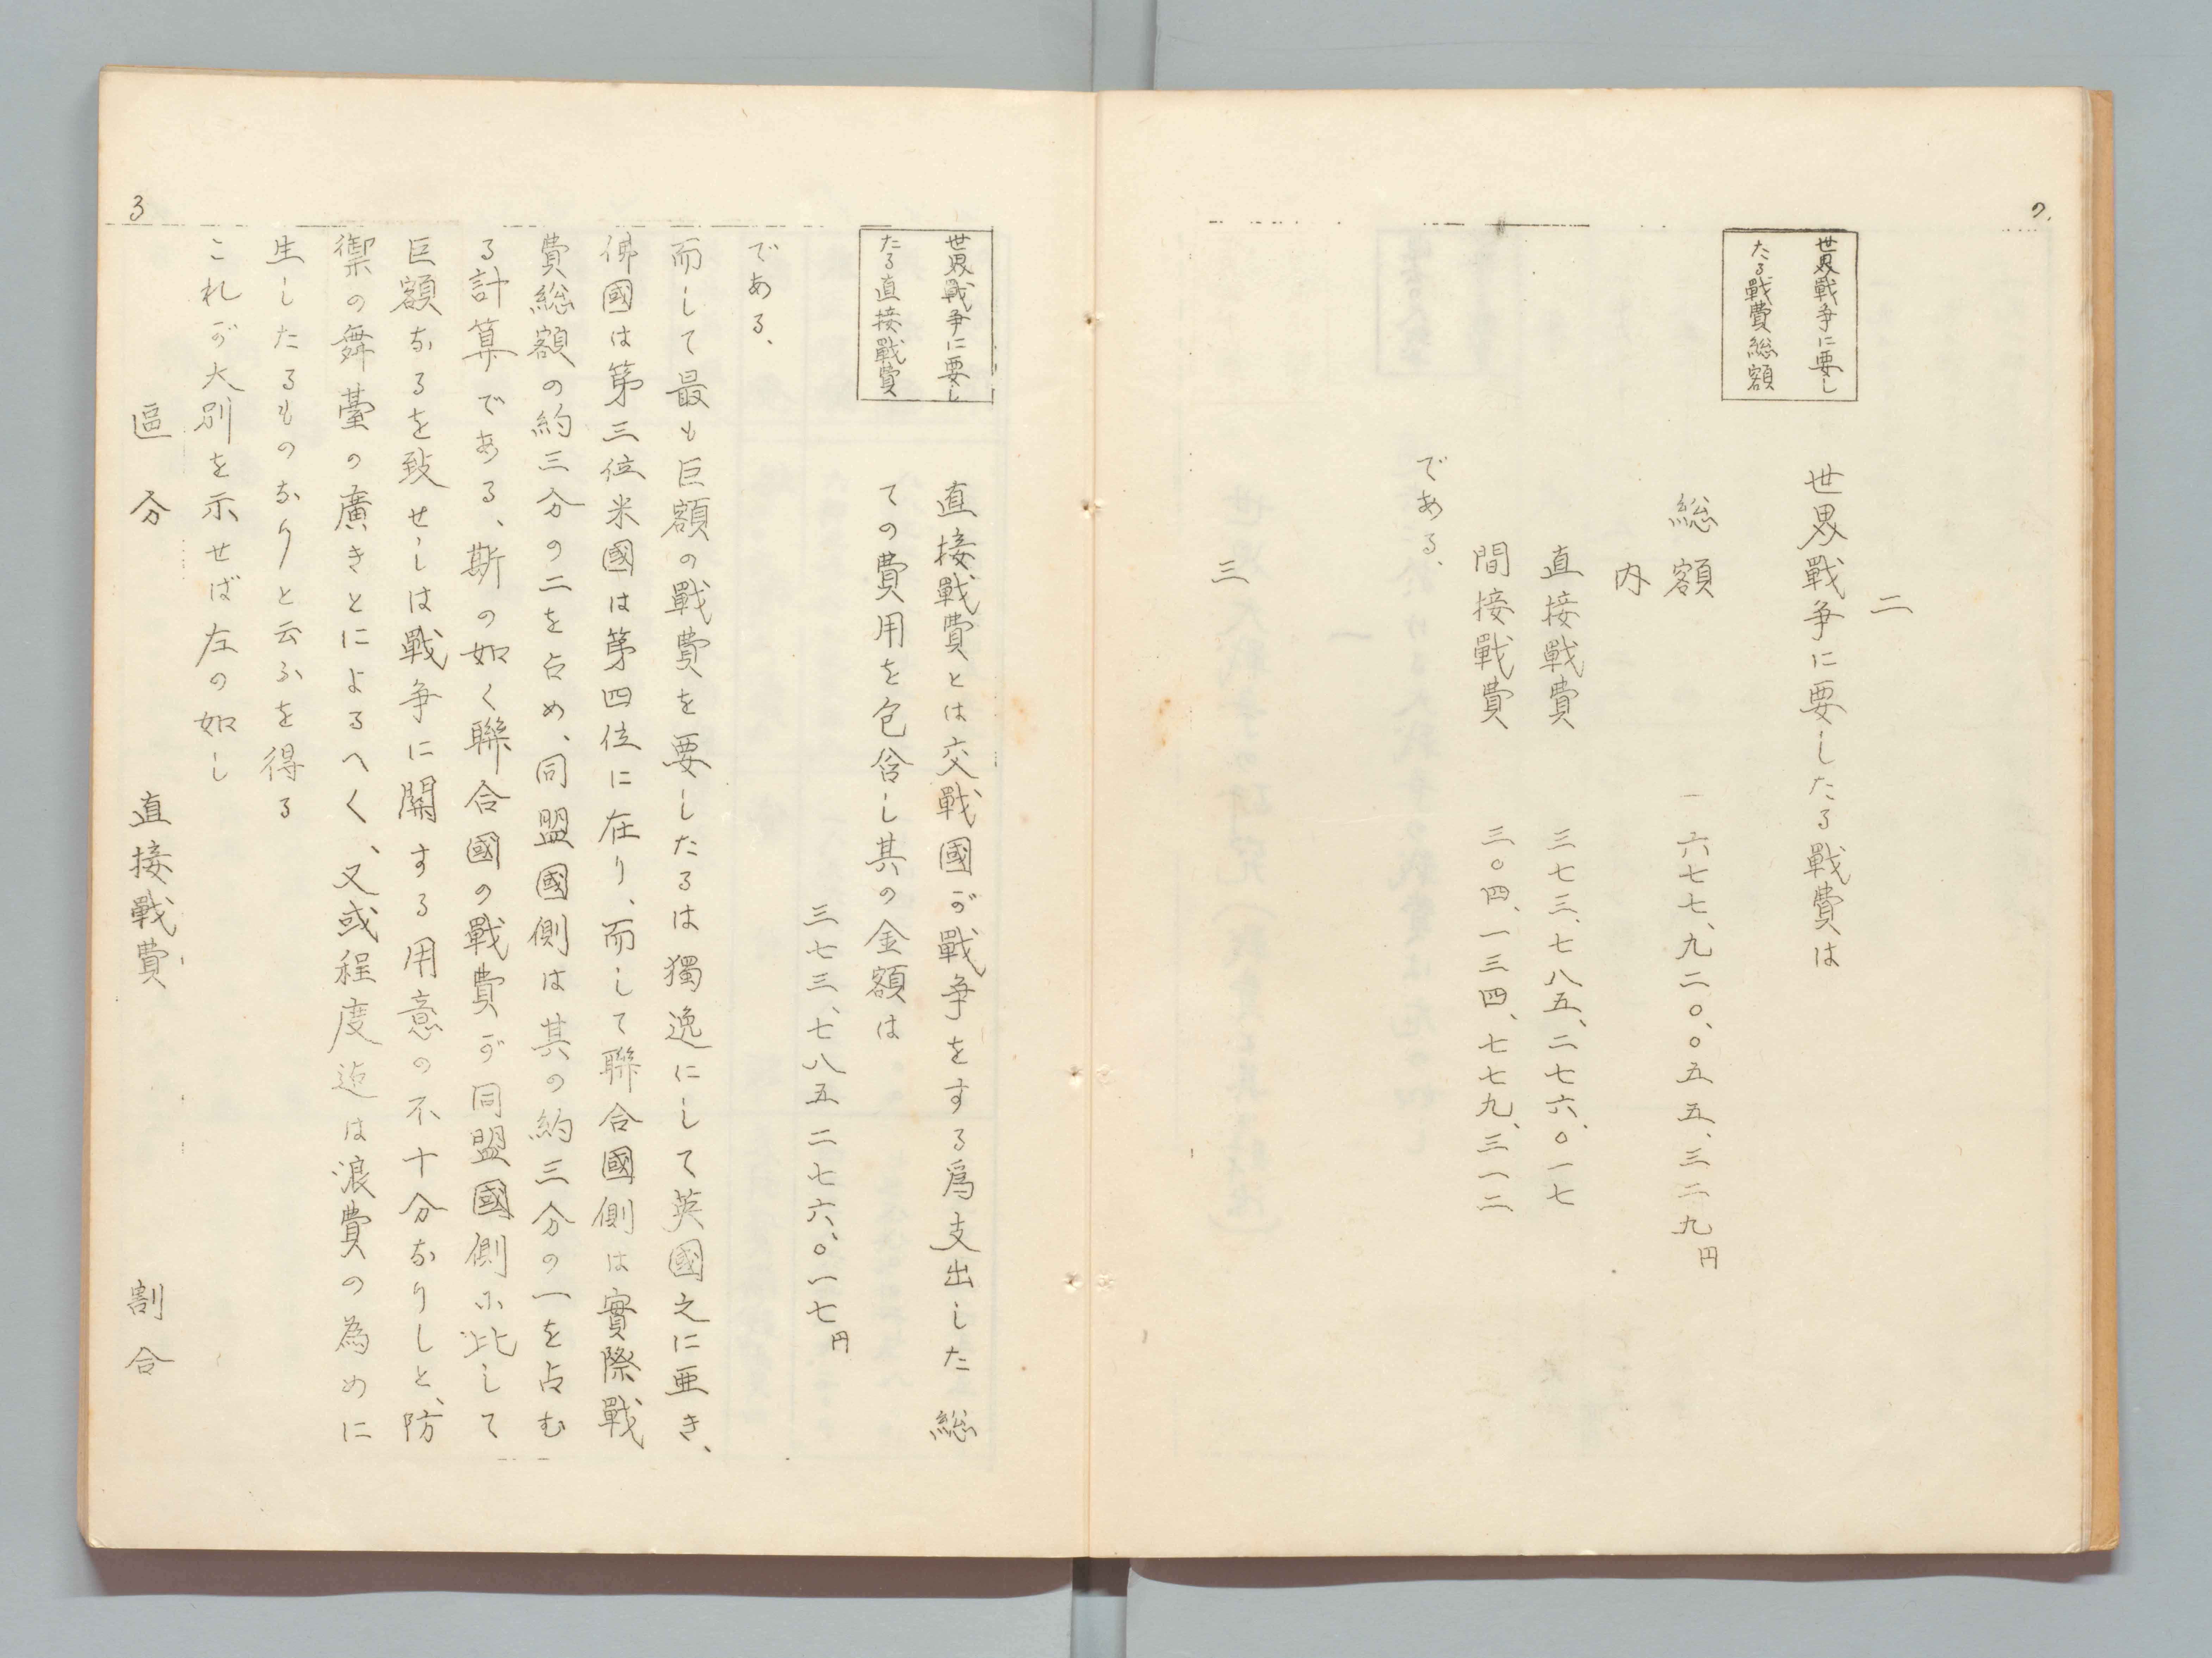 2.
世界戰争に要し
たる戰費総額
二
世界戰争に要したる戰費は
総額 六七七、九二〇、〇五五、三二九円
内
直接戰費 三七三、七八五、二七六、〇一七
間接戰費 三〇四、一三四、七七九、三一二
である、
三
世界戰争に要し
たる直接戰費
直接戰費とは交戰國が戰争をする爲支出した総
ての費用を包含し其の金額は
三七三、七八五二七六、〇一七円
である、
而して最も巨額の戰費を要したるは獨逸にして英國之に亜き、
佛國は第三位米國は第四位に在り、而して聯合國側は實際戰
費総額の約三分の二を占め、同盟國側は其の約三分の一を占む
る計算である、斯の如く聯合國の戰費が同盟國側に比して
巨額なるを致せしは戰争に關する用意の不十分なりしと、防
禦の舞臺の廣きとによるへく、又或程度迄は浪費の為めに
生したるものなりと云ふを得る
これが大別を示せば左の如し
區分 直接戰費 割合
3